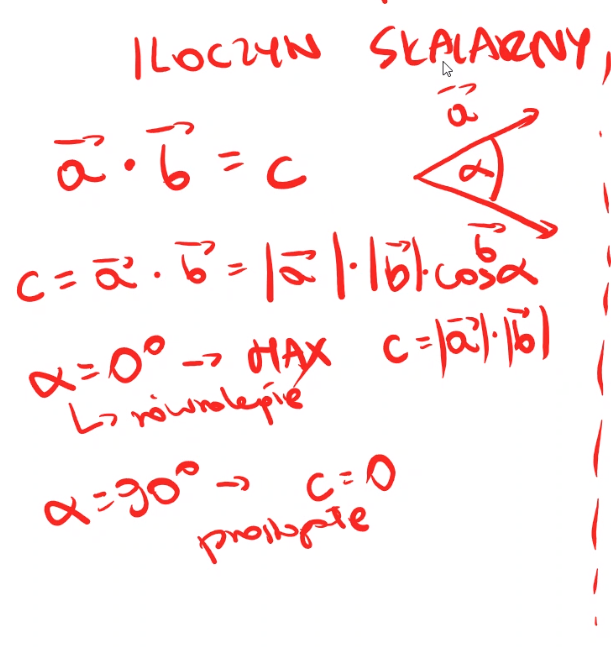 ILOCZYN SKALARNY
a⃗
a⃗ · b⃗ = c
α
b⃗
c = a⃗ · b⃗ = |a⃗| · |b⃗| · cosα
α = 0° → MAX c = |a⃗| · |b⃗|
↳ równolegle
α = 90° → c = 0
prostopadłe